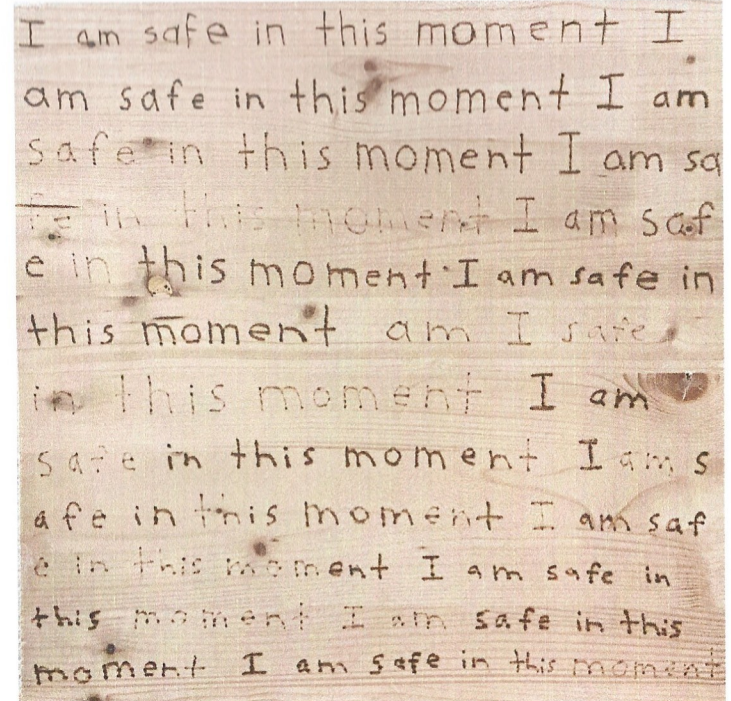 I am safe in this moment I
am safe in this moment I am
safe in this moment I am sa
fe in this moment I am saf
e in this moment I am safe in
this moment am I safe
in this moment I am
safe in this moment I am s
afe in this moment I am saf
e in this moment I am safe in
this moment I am safe in this
moment I am safe in this moment